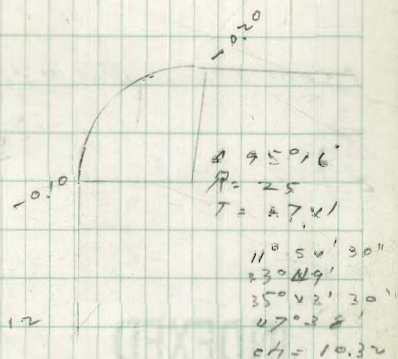 -0.20
-0.10
Δ 95°16'
R = 25
T = 27.41
11° 54' 30"
23° 49'
35° 43' 30"
47° 38'
ch = 10.32